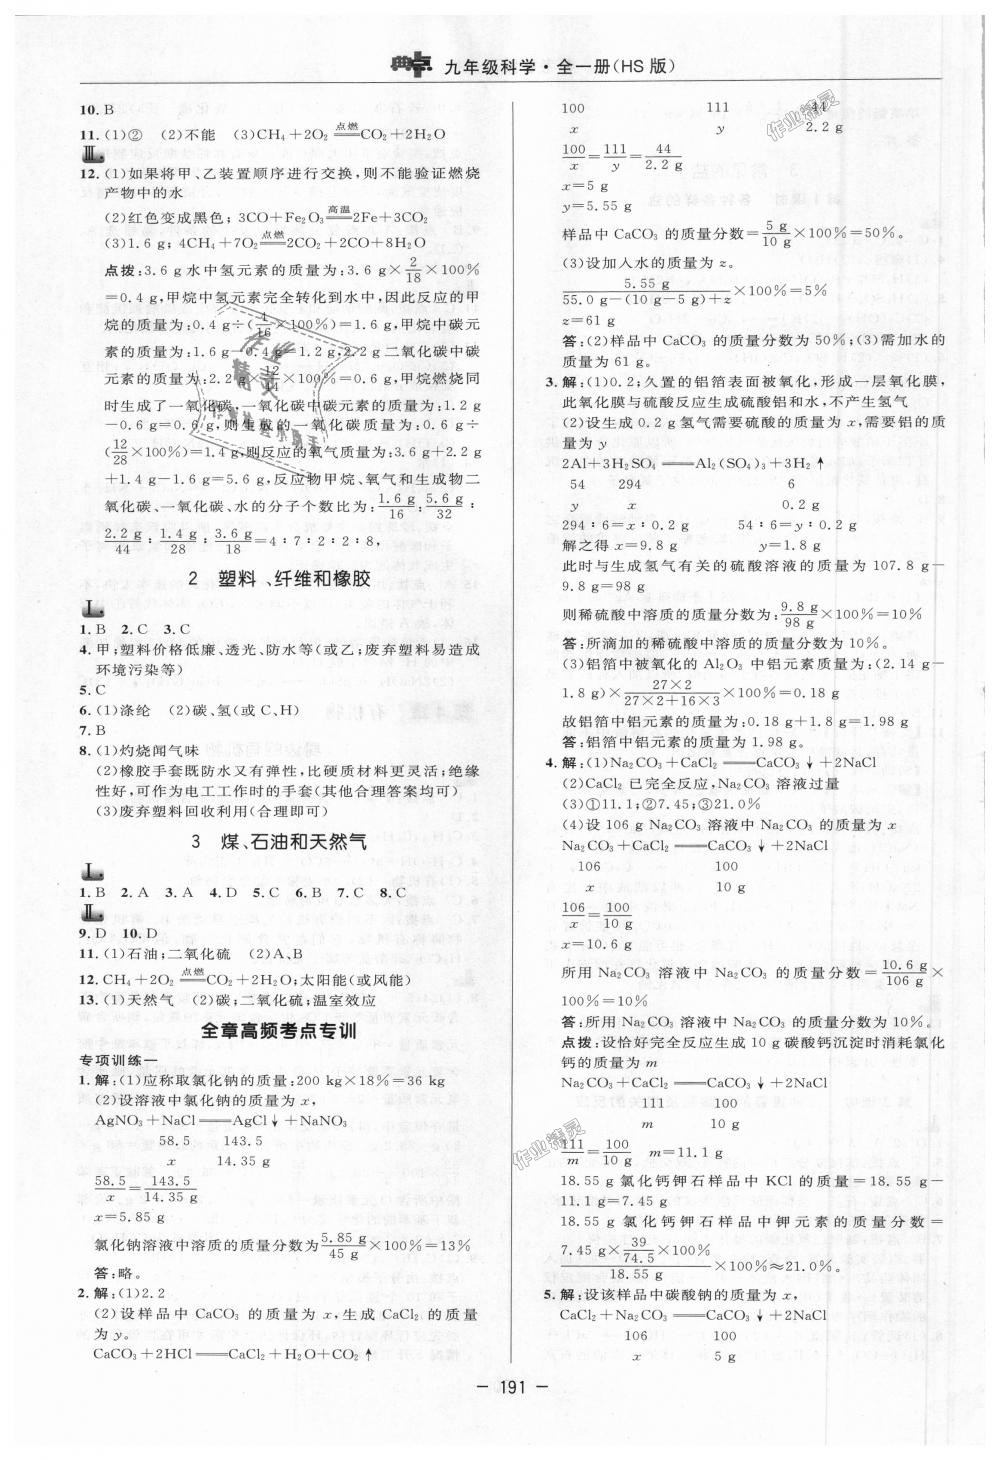 典点 九年级科学·全一册(HS版)
10. B
11. (1)② (2)不能 (3)CH₄+2O₂ =点燃= CO₂+2H₂O
Ⅲ.
12. (1)如果将甲、乙装置顺序进行交换,则不能验证燃烧
产物中的水
(2)红色变成黑色;3CO+Fe₂O₃ =高温= 2Fe+3CO₂
(3)1.6 g;4CH₄+7O₂ =点燃= 2CO₂+2CO+8H₂O
点拨:3.6 g水中氢元素的质量为:3.6 g×2/18×100%
=0.4 g,甲烷中氢元素完全转化到水中,因此反应的甲
烷的质量为:0.4 g÷(4/16×100%)=1.6 g,甲烷中碳元
素的质量为:1.6 g-0.4 g=1.2 g,2.2 g二氧化碳中碳
元素的质量为:2.2 g×12/44×100%=0.6 g,甲烷燃烧同
时生成了一氧化碳,一氧化碳中碳元素的质量为:1.2 g
-0.6 g=0.6 g,则生成的一氧化碳质量为:0.6 g÷
(12/28×100%)=1.4 g,则反应的氧气质量为:3.6 g+2.2 g
+1.4 g-1.6 g=5.6 g,反应物甲烷、氧气和生成物二
氧化碳、一氧化碳、水的分子个数比为:1.6 g/16:5.6 g/32:
2.2 g/44:1.4 g/28:3.6 g/18=4:7:2:2:8,
2 塑料、纤维和橡胶
Ⅰ.
1. B 2. C 3. C
4. 甲;塑料价格低廉、透光、防水等(或乙;废弃塑料易造成
环境污染等)
5. C
6. (1)涤纶 (2)碳、氢(或C、H)
7. B
8. (1)灼烧闻气味
(2)橡胶手套既防水又有弹性,比硬质材料更灵活;绝缘
性好,可作为电工工作时的手套(其他合理答案均可)
(3)废弃塑料回收利用(合理即可)
3 煤、石油和天然气
Ⅰ.
1. B 2. A 3. A 4. D 5. C 6. B 7. C 8. C
Ⅱ.
9. D 10. D
11. (1)石油;二氧化硫 (2)A、B
12. CH₄+2O₂ =点燃= CO₂+2H₂O;太阳能(或风能)
13. (1)天然气 (2)碳;二氧化硫;温室效应
全章高频考点专训
专项训练一
1. 解:(1)应称取氯化钠的质量:200 kg×18%=36 kg
(2)设溶液中氯化钠的质量为x,
AgNO₃+NaCl══AgCl↓+NaNO₃
58.5 143.5
x 14.35 g
58.5/x=143.5/14.35 g
x=5.85 g
氯化钠溶液中溶质的质量分数为5.85 g/45 g×100%=13%
答:略。
2. 解:(1)2.2
(2)设样品中CaCO₃的质量为x,生成CaCl₂的质量
为y。
CaCO₃+2HCl══CaCl₂+H₂O+CO₂↑
100 111 44
x y 2.2 g
100/x=111/y=44/2.2 g
x=5 g
y=5.55 g
样品中CaCO₃的质量分数=5 g/10 g×100%=50%。
(3)设加入水的质量为z。
5.55 g/(55.0 g-(10 g-5 g)+z)×100%=5%
z=61 g
答:(2)样品中CaCO₃的质量分数为50%;(3)需加水的
质量为61 g。
3. 解:(1)0.2;久置的铝箔表面被氧化,形成一层氧化膜,
此氧化膜与硫酸反应生成硫酸铝和水,不产生氢气
(2)设生成0.2 g氢气需要硫酸的质量为x,需要铝的质
量为y
2Al+3H₂SO₄══Al₂(SO₄)₃+3H₂↑
54 294 6
y x 0.2 g
294:6=x:0.2 g 54:6=y:0.2 g
解之得x=9.8 g y=1.8 g
此时与生成氢气有关的硫酸溶液的质量为107.8 g-
9.8 g=98 g
则稀硫酸中溶质的质量分数为:9.8 g/98 g×100%=10%
答:所滴加的稀硫酸中溶质的质量分数为10%。
(3)铝箔中被氧化的Al₂O₃中铝元素质量为:(2.14 g-
1.8 g)×27×2/(27×2+16×3)×100%=0.18 g
故铝箔中铝元素的质量为:0.18 g+1.8 g=1.98 g
答:铝箔中铝元素的质量为1.98 g。
4. 解:(1)Na₂CO₃+CaCl₂══CaCO₃↓+2NaCl
(2)CaCl₂已完全反应,Na₂CO₃溶液过量
(3)①11.1;②7.45;③21.0%
(4)设106 g Na₂CO₃溶液中Na₂CO₃的质量为x
Na₂CO₃+CaCl₂══CaCO₃↓+2NaCl
106 100
x 10 g
106/x=100/10 g
x=10.6 g
所用Na₂CO₃溶液中Na₂CO₃的质量分数=10.6 g/106 g×
100%=10%
答:所用Na₂CO₃溶液中Na₂CO₃的质量分数为10%。
点拨:设恰好完全反应生成10 g碳酸钙沉淀时消耗氯化
钙的质量为m
Na₂CO₃+CaCl₂══CaCO₃↓+2NaCl
111 100
m 10 g
111/m=100/10 g m=11.1 g
18.55 g氯化钙钾石样品中KCl的质量=18.55 g-
11.1 g=7.45 g
18.55 g氯化钙钾石样品中钾元素的质量分数=
(7.45 g×39/74.5×100%)/18.55 g×100%≈21.0%。
5. 解:设该样品中碳酸钠的质量为x,
CaCl₂+Na₂CO₃══CaCO₃↓+2NaCl
106 100
x 5 g
- 191 -
作业精灵
作业精灵
作业精灵